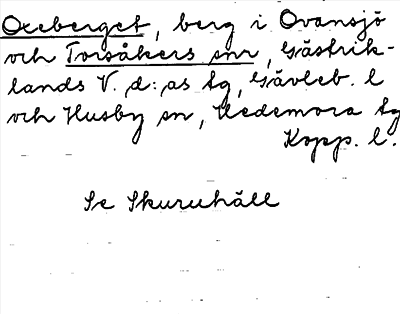 Oxeberget, berg i Ovansjö
och Torsåkers snr, Gästrik-
lands V. d:as tg, Gävleb. l
och Husby sn, Hedemora tg
Kopp. l.
Se Skuruhäll